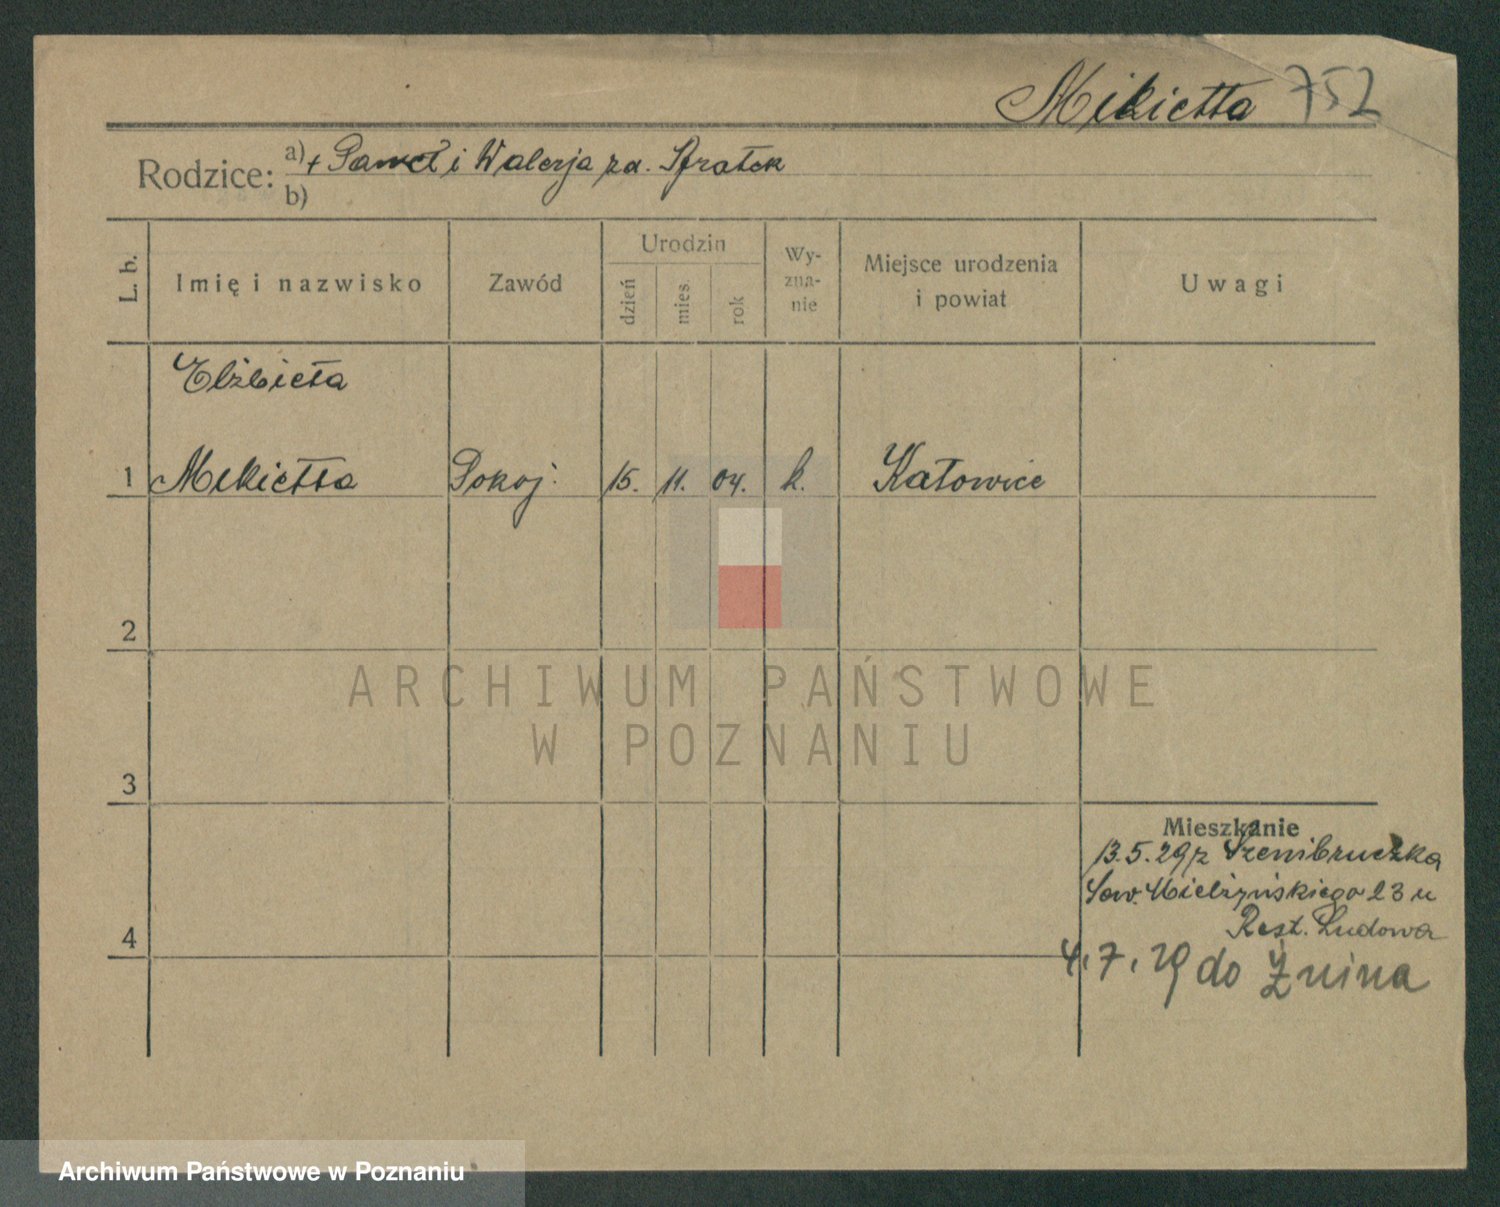 Mikietta 752
Rodzice:
a) + Paweł i Walerja za.
b)
L. b.
Imię i nazwisko
Zawód
Urodzin
dzień
mies.
rok
Wy-
zna-
nie
Miejsce urodzenia
i powiat
Uwagi
Elżbieta
1 Mikietta Pokoj. 15. 11. 04. k. Katowice
2
3
4
Mieszkanie
13.5.29 z
Mielżyńskiego 23 u
Rest. Ludowa
4.7.29 do Żnina
ARCHIWUM PAŃSTWOWE
W POZNANIU
Archiwum Państwowe w Poznaniu